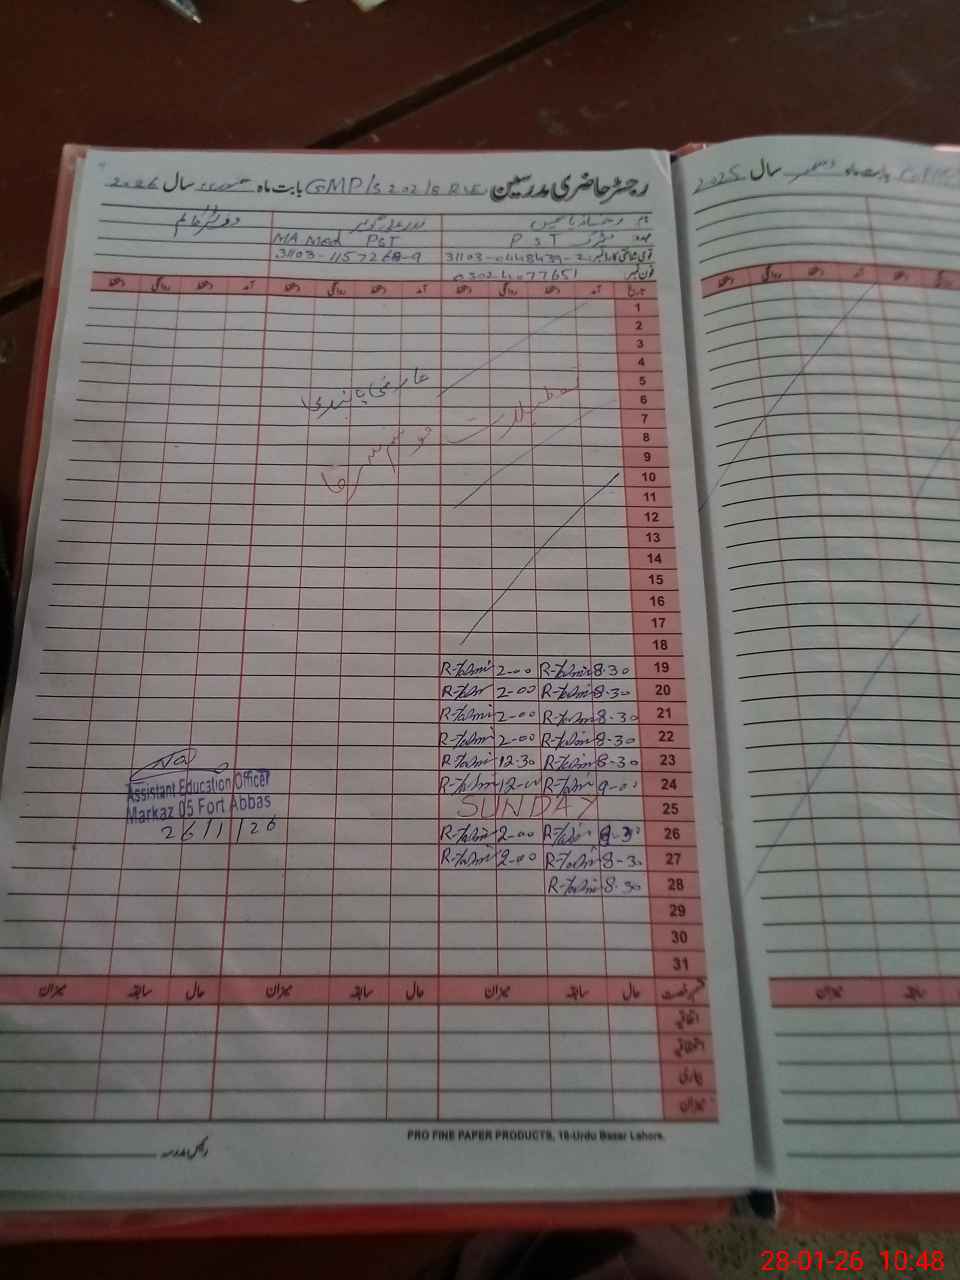 رجسٹر حاضری مدرسین GMP/S 202/9 R بابت ماہ جنوری سال 2026
نام
عہدہ P S T MA Med PST
قومی شناختی کارڈ نمبر: 31103-0448439-2 31103-1157268-9
فون نمبر 0302-4077651
تاریخ آمد دستخط روانگی دستخط آمد دستخط روانگی دستخط آمد دستخط روانگی دستخط
1
2
3
4
5
عارضی پابندی
تعطیلات
6
7
8
موسم سرما
9
10
11
12
13
14
15
16
17
18
19 8.30 R-Tasmi 2-00 R-Tasmi
20 8-30 R-Tasmi 2-00 R-Tasmi
21 8-30 R-Tasmi 2-00 R-Tasmi
22 8-30 R-Tasmi 2-00 R-Tasmi
23 8-30 R-Tasmi 12-30 R-Tasmi
24 9-00 R-Tasmi 12-00 R-Tasmi
25 SUNDAY
26 8-30 R-Tasmi 2-00 R-Tasmi
27 8-30 R-Tasmi 2-00 R-Tasmi
28 8-30 R-Tasmi
29
30
31
Assistant Education Officer
Markaz 05 Fort Abbas
26/1/26
قسم رخصت حال سابقہ میزان حال سابقہ میزان حال سابقہ میزان
اتفاقیہ
استحقاقیہ
بیماری
میزان
PRO FINE PAPER PRODUCTS, 16-Urdu Bazar Lahore.
رئیس مدرسہ
بابت ماہ دسمبر سال 2025
دستخط روانگی دستخط
میزان سابقہ
28-01-26 10:48